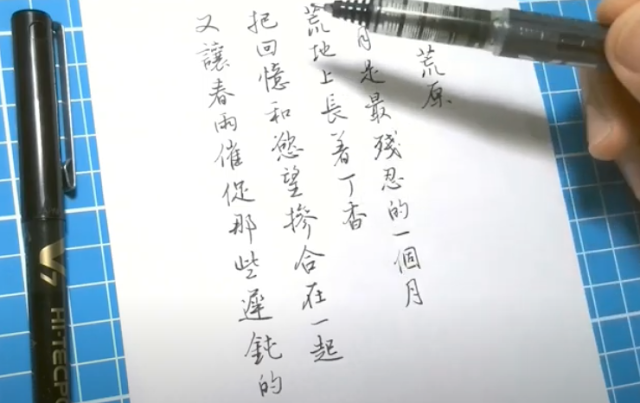 荒原
月是最殘忍的一個月
荒地上長着丁香
把回憶和慾望摻合在一起
又讓春雨催促那些遲鈍的
V7
HI-TECPO